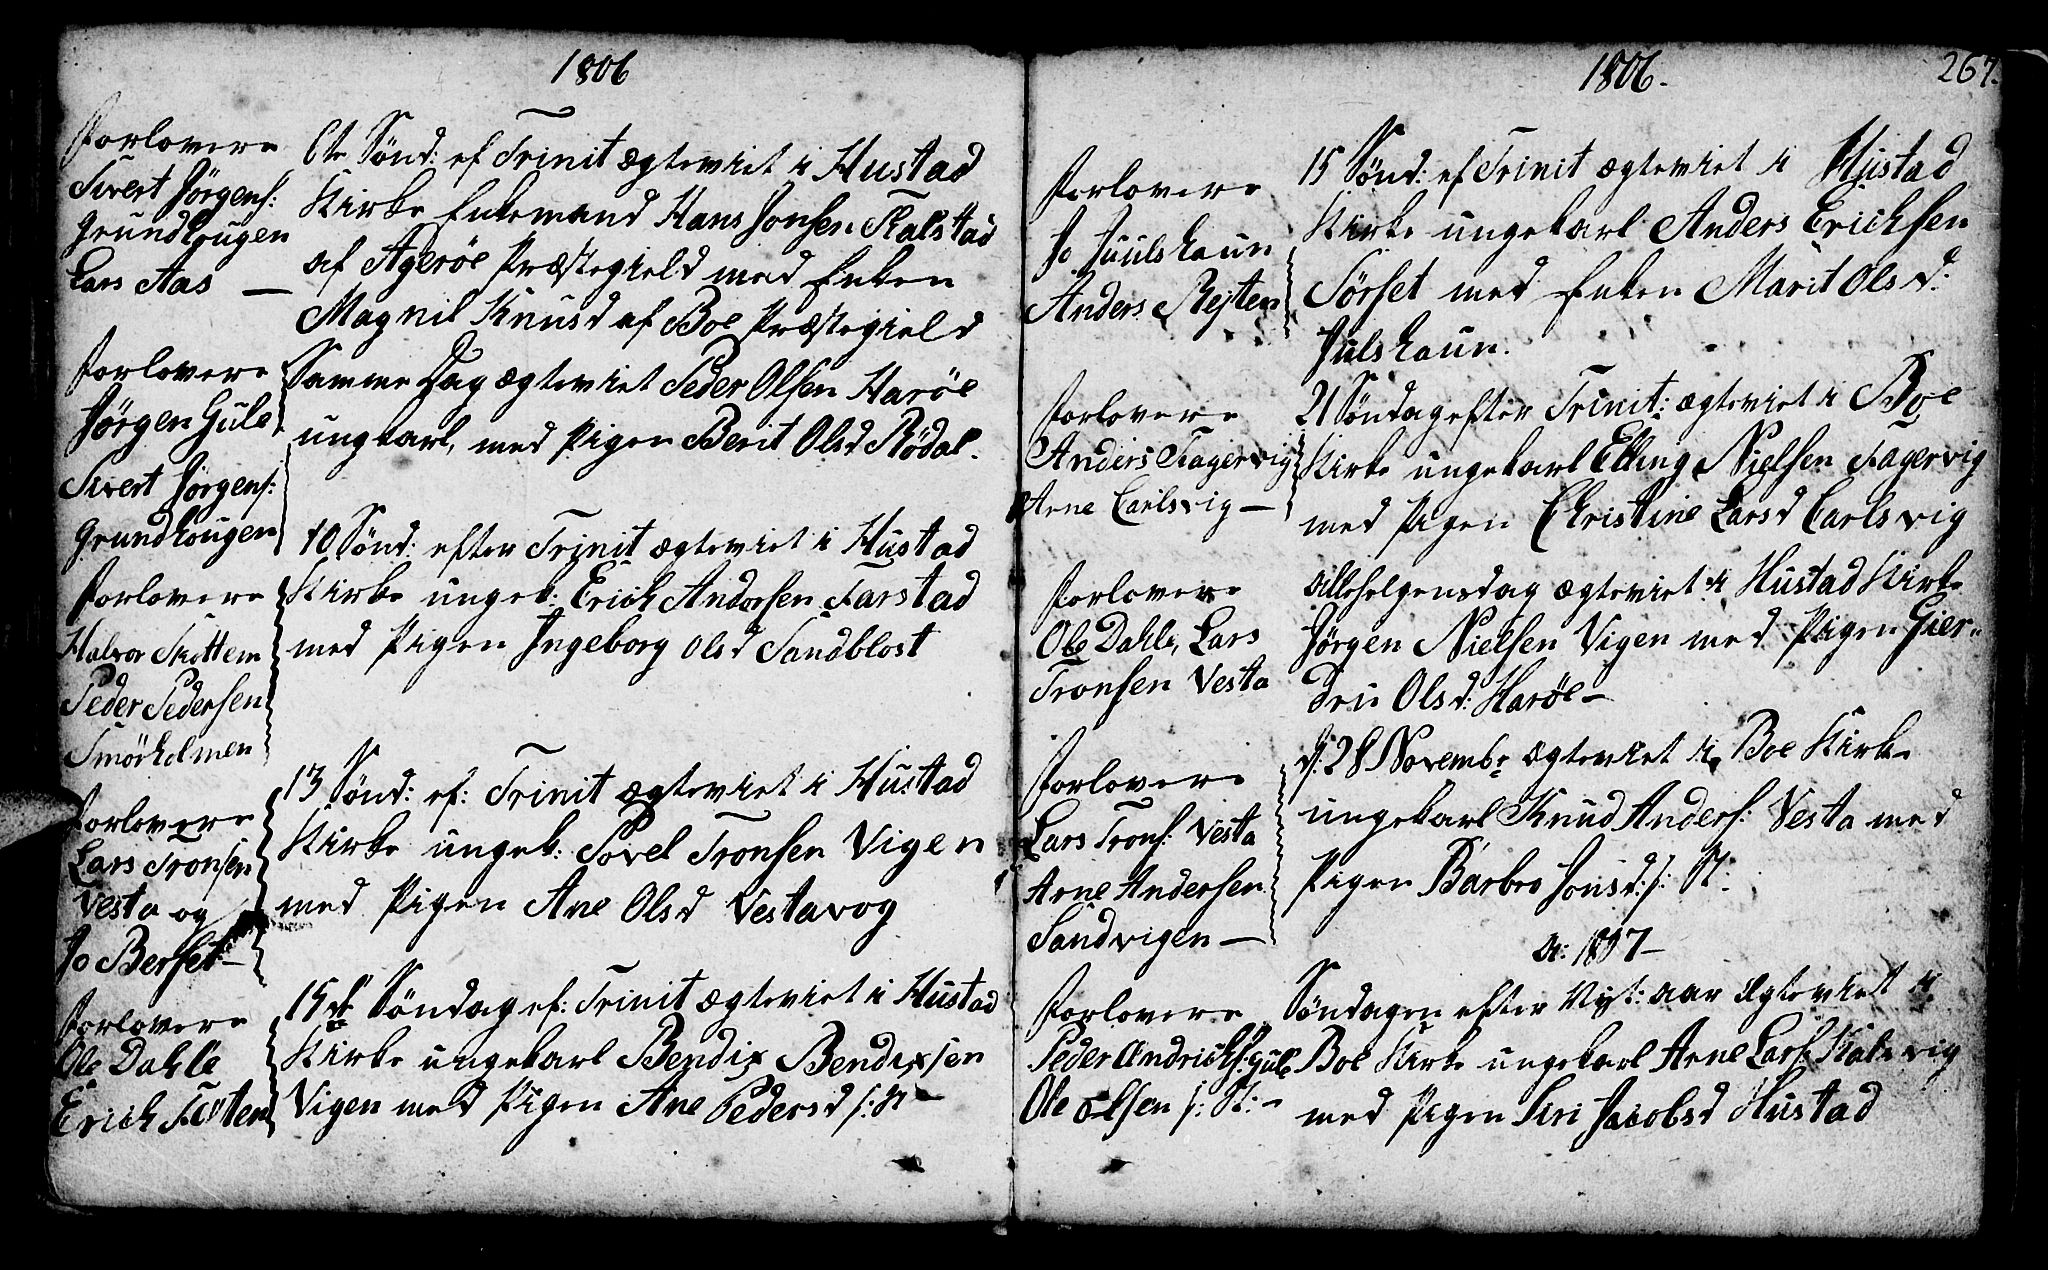 1806
Forlovere
Sivert Jörgens:
Grundhougen
Lars Aas —
6te Sönd: ef Trinit ægteviet i Hustad
Kirke Enkemand Hans Jonsen Skalstad
af Agerøe Præstegield med Enken
Magnil Knusd af Boe Præstegield
Forlovere
Jörgen Gule
Sivert Jörgens:
Grundhougen
Samme Dag ægteviet Peder Olsen Harøe
ungkarl, med Pigen Berit Olsd Rödal.
Forlovere
Halvor Skottem
Peder Pedersen
Smörholmen
10 Sönd: efter Trinit ægteviet i Hustad
Kirke ungek: Erich Andersen Farstad
med Pigen Ingeborg Olsd Sandblost
Forlovere
Lars Tronsen
Vesta og
Jo Berset —
13 Sönd: ef: Trinit ægteviet i Hustad
Kirke ungek: Povel Tronsen Vigen
med Pigen Ane Olsd Vestavog
Forlovere
Ole Dahle
Erich Tosten
15de Söndag ef: Trinit ægteviet i Hustad
Kirke ungekarl Bendix Bendixsen
Vigen med Pigen Ane Pedersd s: St —
1806.
267.
Forlovere
Jo Juulshaun
Anders Rejten
15 Sönd: ef Trinit ægteviet i Hustad
Kirke ungekarl Anders Erichsen
Sörset med Enken Marit Olsd:
Julshaun.
Forlovere
Anders Fagervig
Arne Carlsvig —
21 Söndag efter Trinit: ægteviet i Boe
Kirke ungekarl Elling Nielsen Fagervig
med Pigen Christine Larsd Carlsvig
Forlovere
Ole Dahle, Lars
Tronsen Vesta
Allehelgensdag ægteviet i Hustad Kirke
Jörgen Nielsen Vigen med Pigen Gier-
dru Olsd: Harøe —
Forlovere
Lars Trons: Vesta
Arne Andersen
Sandvigen —
d: 28 Novembr ægteviet i Boe Kirke
ungekarl Knud Anders: Vesta med
Pigen Barbro Jonsd: s: St:
A: 1807 —
Forlovere
Peder Andrichs: Gule
Ole Olsen s: St: —
Söndagen efter Nyt: aar ægteviet i
Boe Kirke ungekarl Arne Lars: Kalsvig
med Pigen Siri Jacobsd Hustad